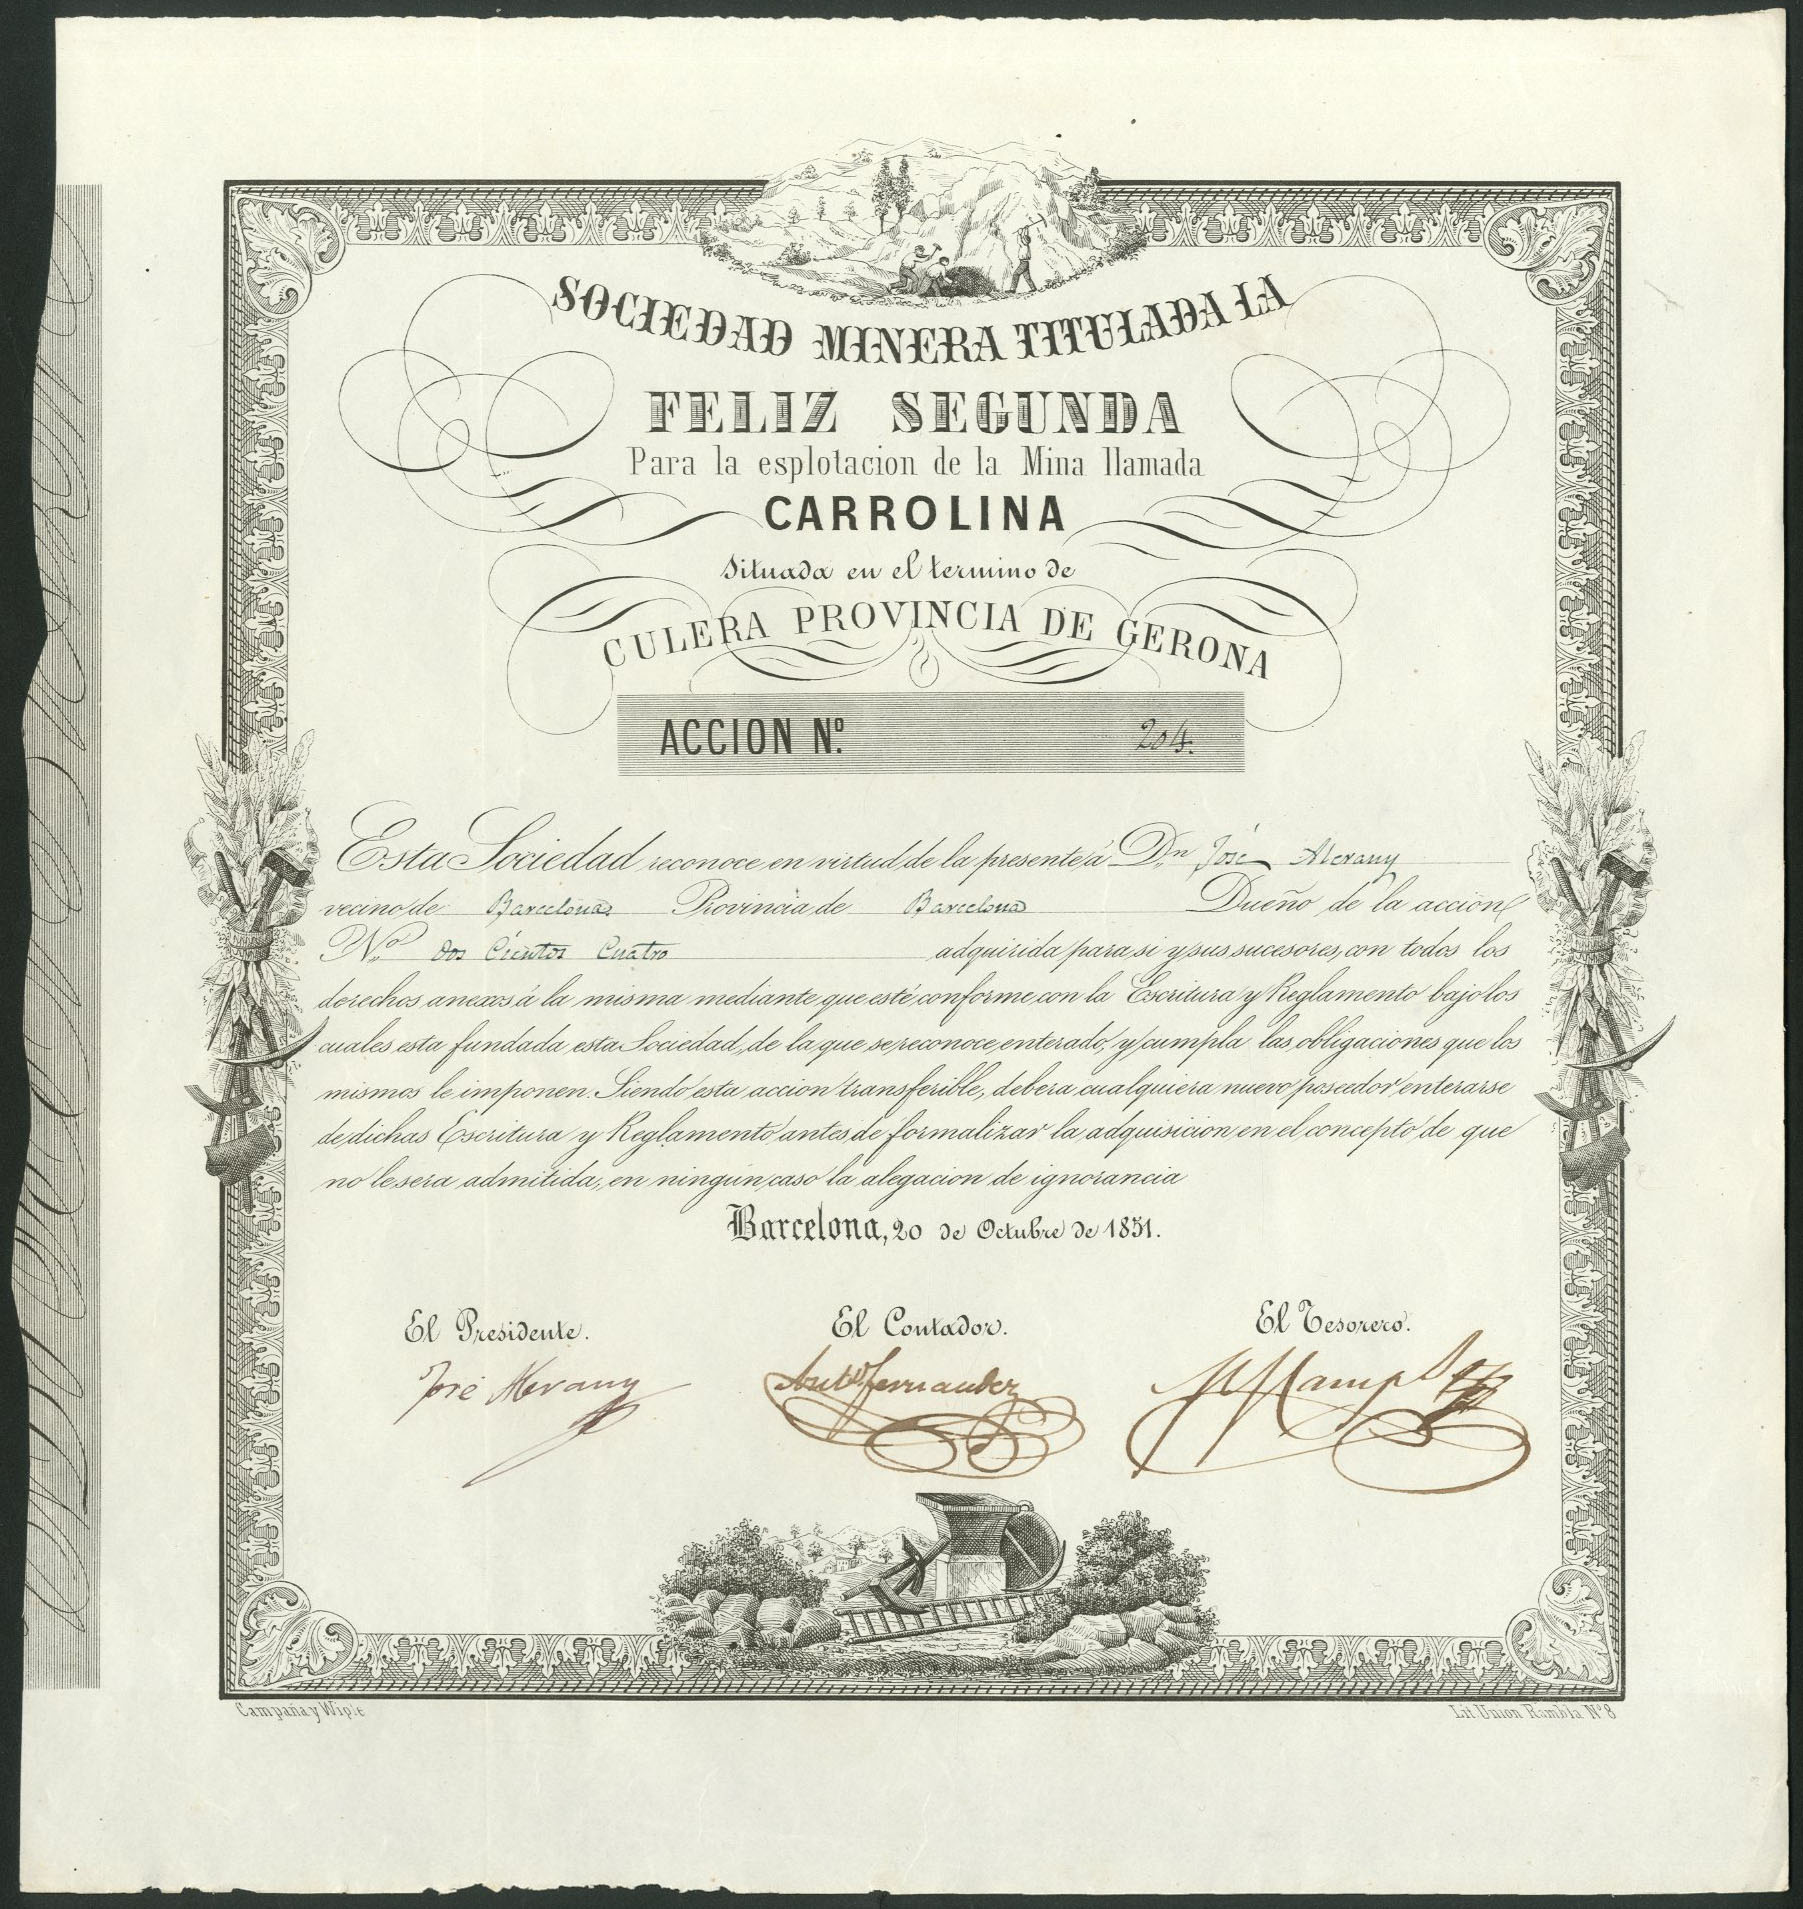 SOCIEDAD MINERA TITULADA LA
FELIZ SEGUNDA
Para la esplotacion de la Mina llamada
CARROLINA
Situada en el termino de
CULERA PROVINCIA DE GERONA
ACCION Nº. 204.
Esta Sociedad reconoce en virtud de la presente á Dn. José Merany
vecino de Barcelona Provincia de Barcelona Dueño de la accion
Nº. dos Cientos Cuatro adquirida para si y sus sucesores, con todos los
derechos anexos á la misma mediante que esté conforme con la Escritura y Reglamento bajo los
cuales esta fundada esta Sociedad, de la que se reconoce enterado, y cumpla las obligaciones que los
mismos le imponen. Siendo esta accion transferible, debera cualquiera nuevo poseedor enterarse
de dichas Escritura y Reglamento antes de formalizar la adquisicion en el concepto de que
no le sera admitida, en ningun caso la alegacion de ignorancia
Barcelona, 20 de Octubre de 1851.
El Presidente. El Contador. El Tesorero.
José Merany Anto. Fernandez
Campaña y Wiple Lit. Union Rambla Nº 8